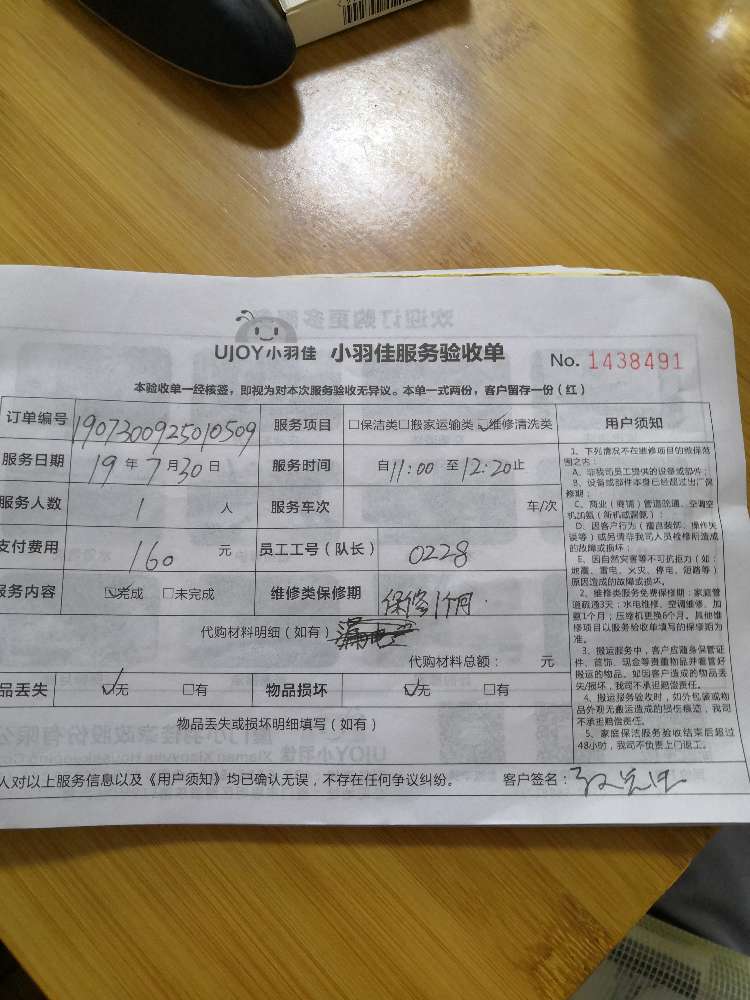 UJOY小羽佳 小羽佳服务验收单 No. 1438491
本验收单一经核签，即视为对本次服务验收无异议。本单一式两份，客户留存一份（红）
订单编号 1907300925010509 服务项目 □保洁类□搬家运输类☑维修清洗类 用户须知
服务日期 19年7月30日 服务时间 自11:00至12:20止
服务人数 1 人 服务车次 车/次
支付费用 160 元 员工工号（队长） 0228
服务内容 ☑完成 □未完成 维修类保修期 保修1个月
代购材料明细（如有）
代购材料总额： 元
品丢失 ☑无 □有 物品损坏 ☑无 □有
物品丢失或损坏明细填写（如有）
人对以上服务信息以及《用户须知》均已确认无误，不存在任何争议纠纷。 客户签名：
1、下列情况不在维修项目的维保范
围之内：
A、非我司员工提供的设备或部件；
B、设备或部件本身已经超过出厂保
修期；
C、商业（商铺）管道疏通、空调空
机加氨（新机或漏氨）；
D、因客户行为（擅自装饰、操作失
误等）或另请非我司人员检修所造成
的故障或损坏；
E、因自然灾害等不可抗拒力（如：
地震、雷电、火灾、停电、短路等）
原因造成的故障或损坏。
2、维修类服务免费保修期：家庭管
道疏通3天；水电维修、空调维修、加
氨1个月；压缩机更换6个月。其他维
修项目以服务验收单填写的保修期为
准。
3、搬运服务中，客户应随身保管证
件、首饰、现金等贵重物品并看管好
搬运的物品。如因客户造成的物品丢
失/损坏，我司不承担赔偿责任。
4、搬运服务验收时，如外包装或物
品外观无搬运造成的损伤痕迹，我司
不承担赔偿责任。
5、家庭保洁服务验收结束后超过
48小时，我司不负责上门返工。